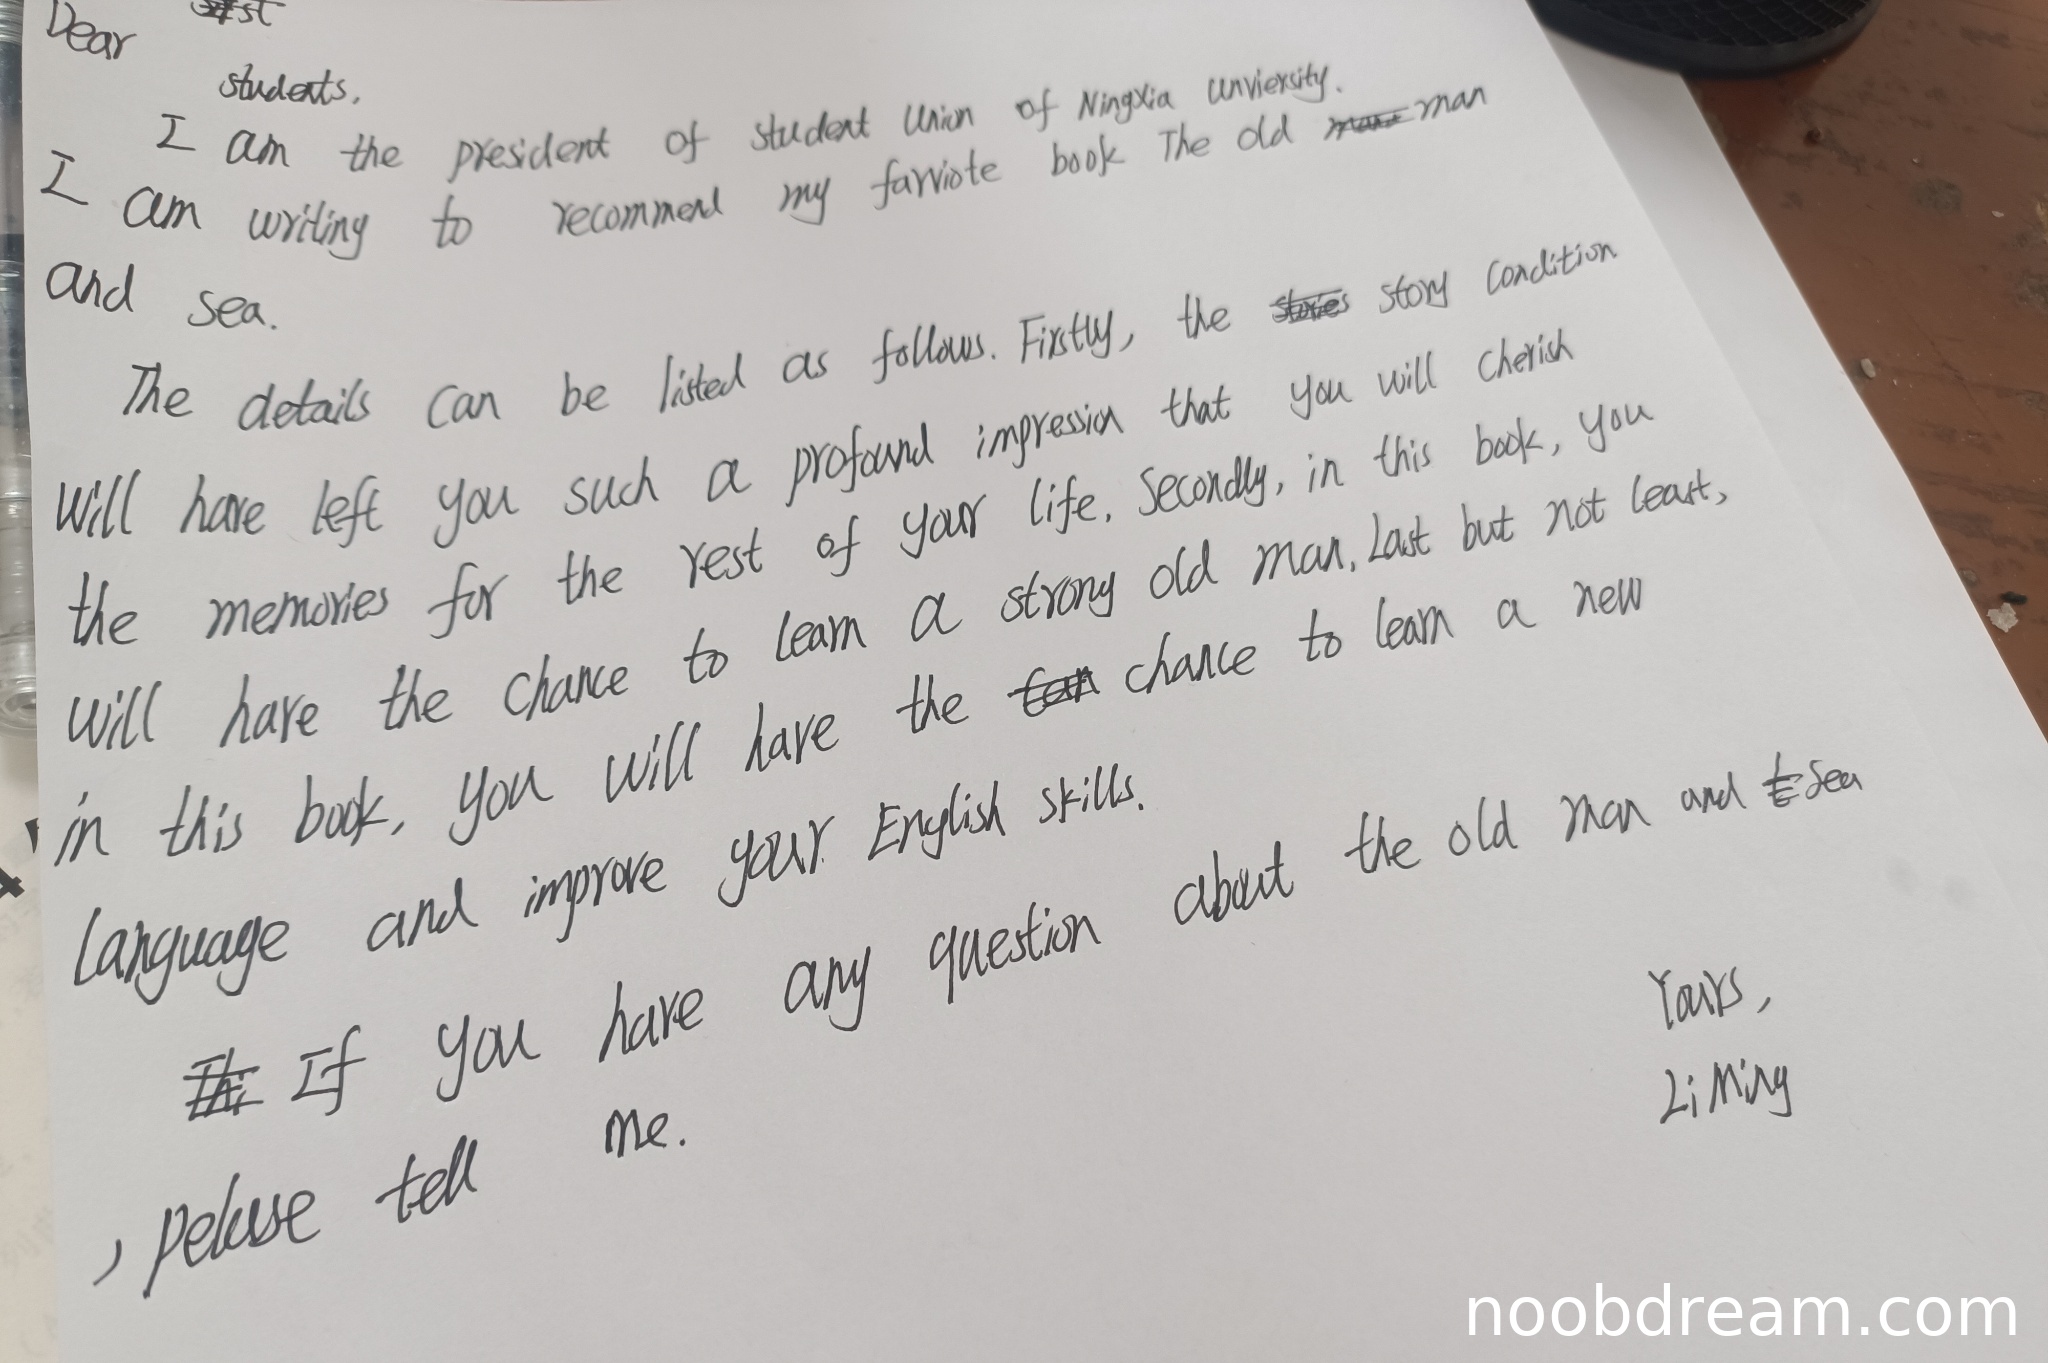 Dear
students,
I am the president of student Union of Ningxia Unviersity.
I am writing to recommend my farviote book The old man
and sea.
The details can be listed as follows. Firstly, the story condition
will have left you such a profound impression that you will cherish
the memories for the rest of your life. Secondly, in this book, you
will have the chance to learn a strong old man. Last but not least,
in this book, you will have the chance to learn a new
language and improve your English skills.
If you have any question about the old man and sea
, peluse tell me.
Yours,
Li Ming
noobdream.com